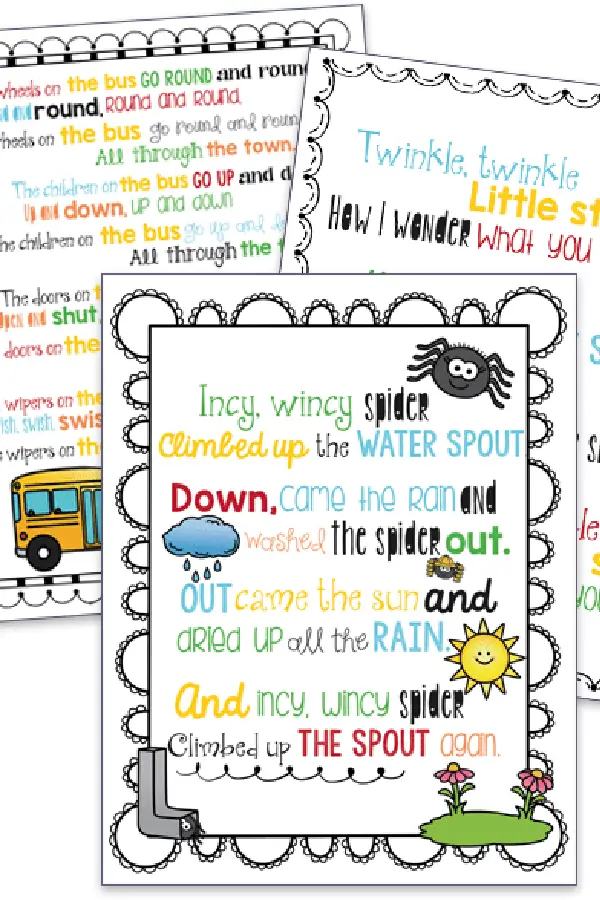 wheels on the bus GO ROUND and roun
and round, ROUND AND ROUND.
wheels on the bus go round and roun
All through the town.
The children on the bus GO UP and d
Up and down, up and down
The children on the bus go up and
All through the
The doors on
Open and shut,
doors on the
wipers on the
ish, swish, swis
wipers on the
Twinkle, twinkle
Little st
How I wonder what you
Incy, wincy spider
Climbed up the WATER SPOUT
Down, came the Rain and
washed the spider out.
OUT came the sun and
dried up all the RAIN.
And incy, wincy spider
Climbed up THE SPOUT again.